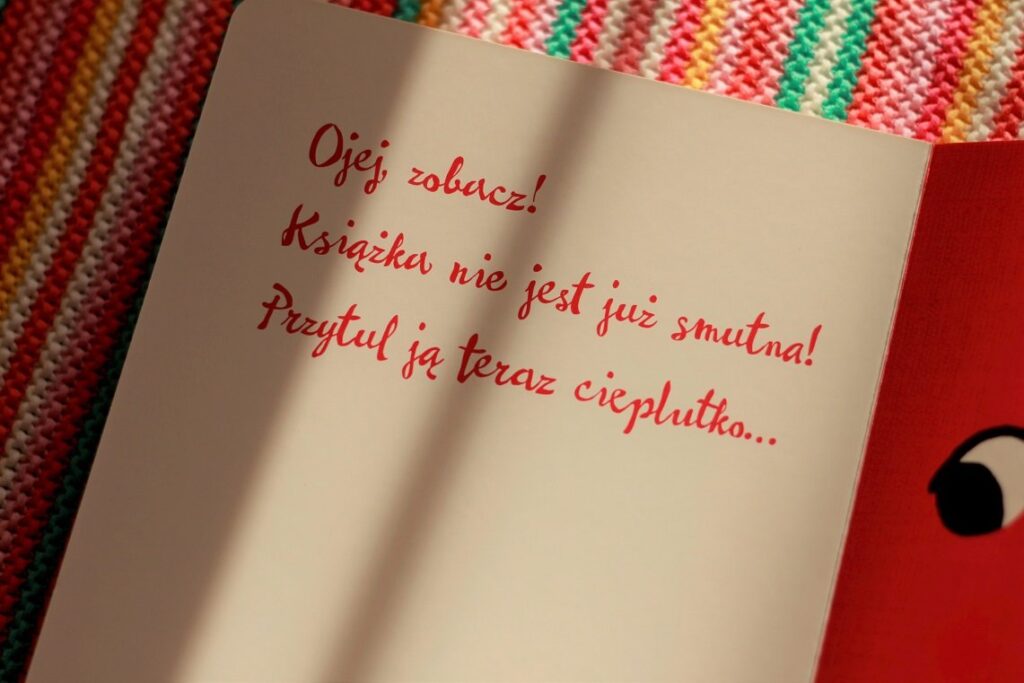 Ojej, zobacz!
Książka nie jest już smutna!
Przytul ją teraz cieplutko...